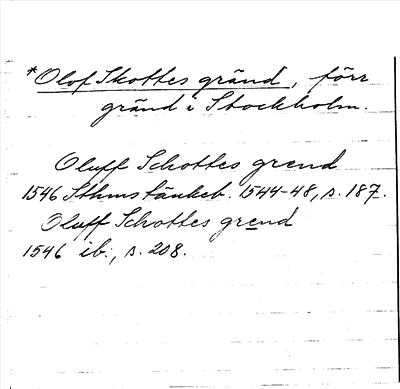 *Olof Skottes gränd, förr
gränd i Stockholm.
Oluff Schottes grend
1546 Sthms tänkeb. 1544-48, s. 187.
Oluff Schottes grend
1546 ib., s. 208.